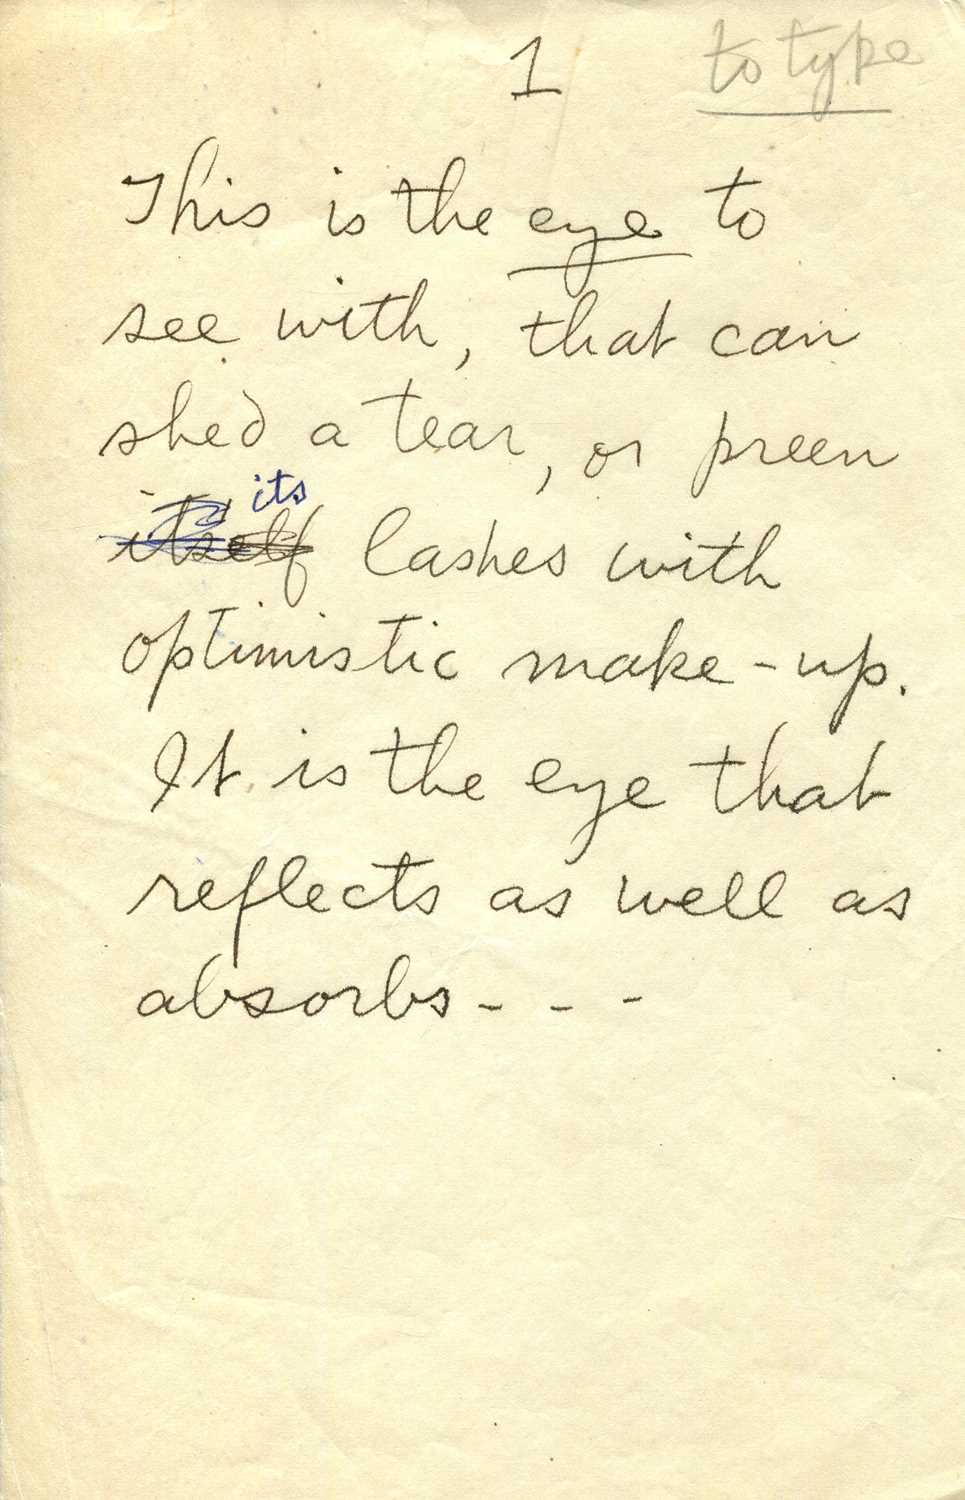 1 to type
This is the eye to
see with, that can
shed a tear, or preen
its
itself lashes with
optimistic make-up.
It is the eye that
reflects as well as
absorbs - - -